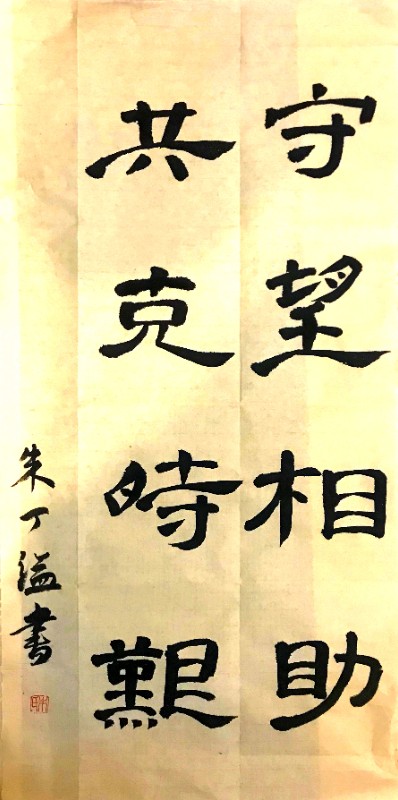 守望相助
共克時艱
朱丁溢書